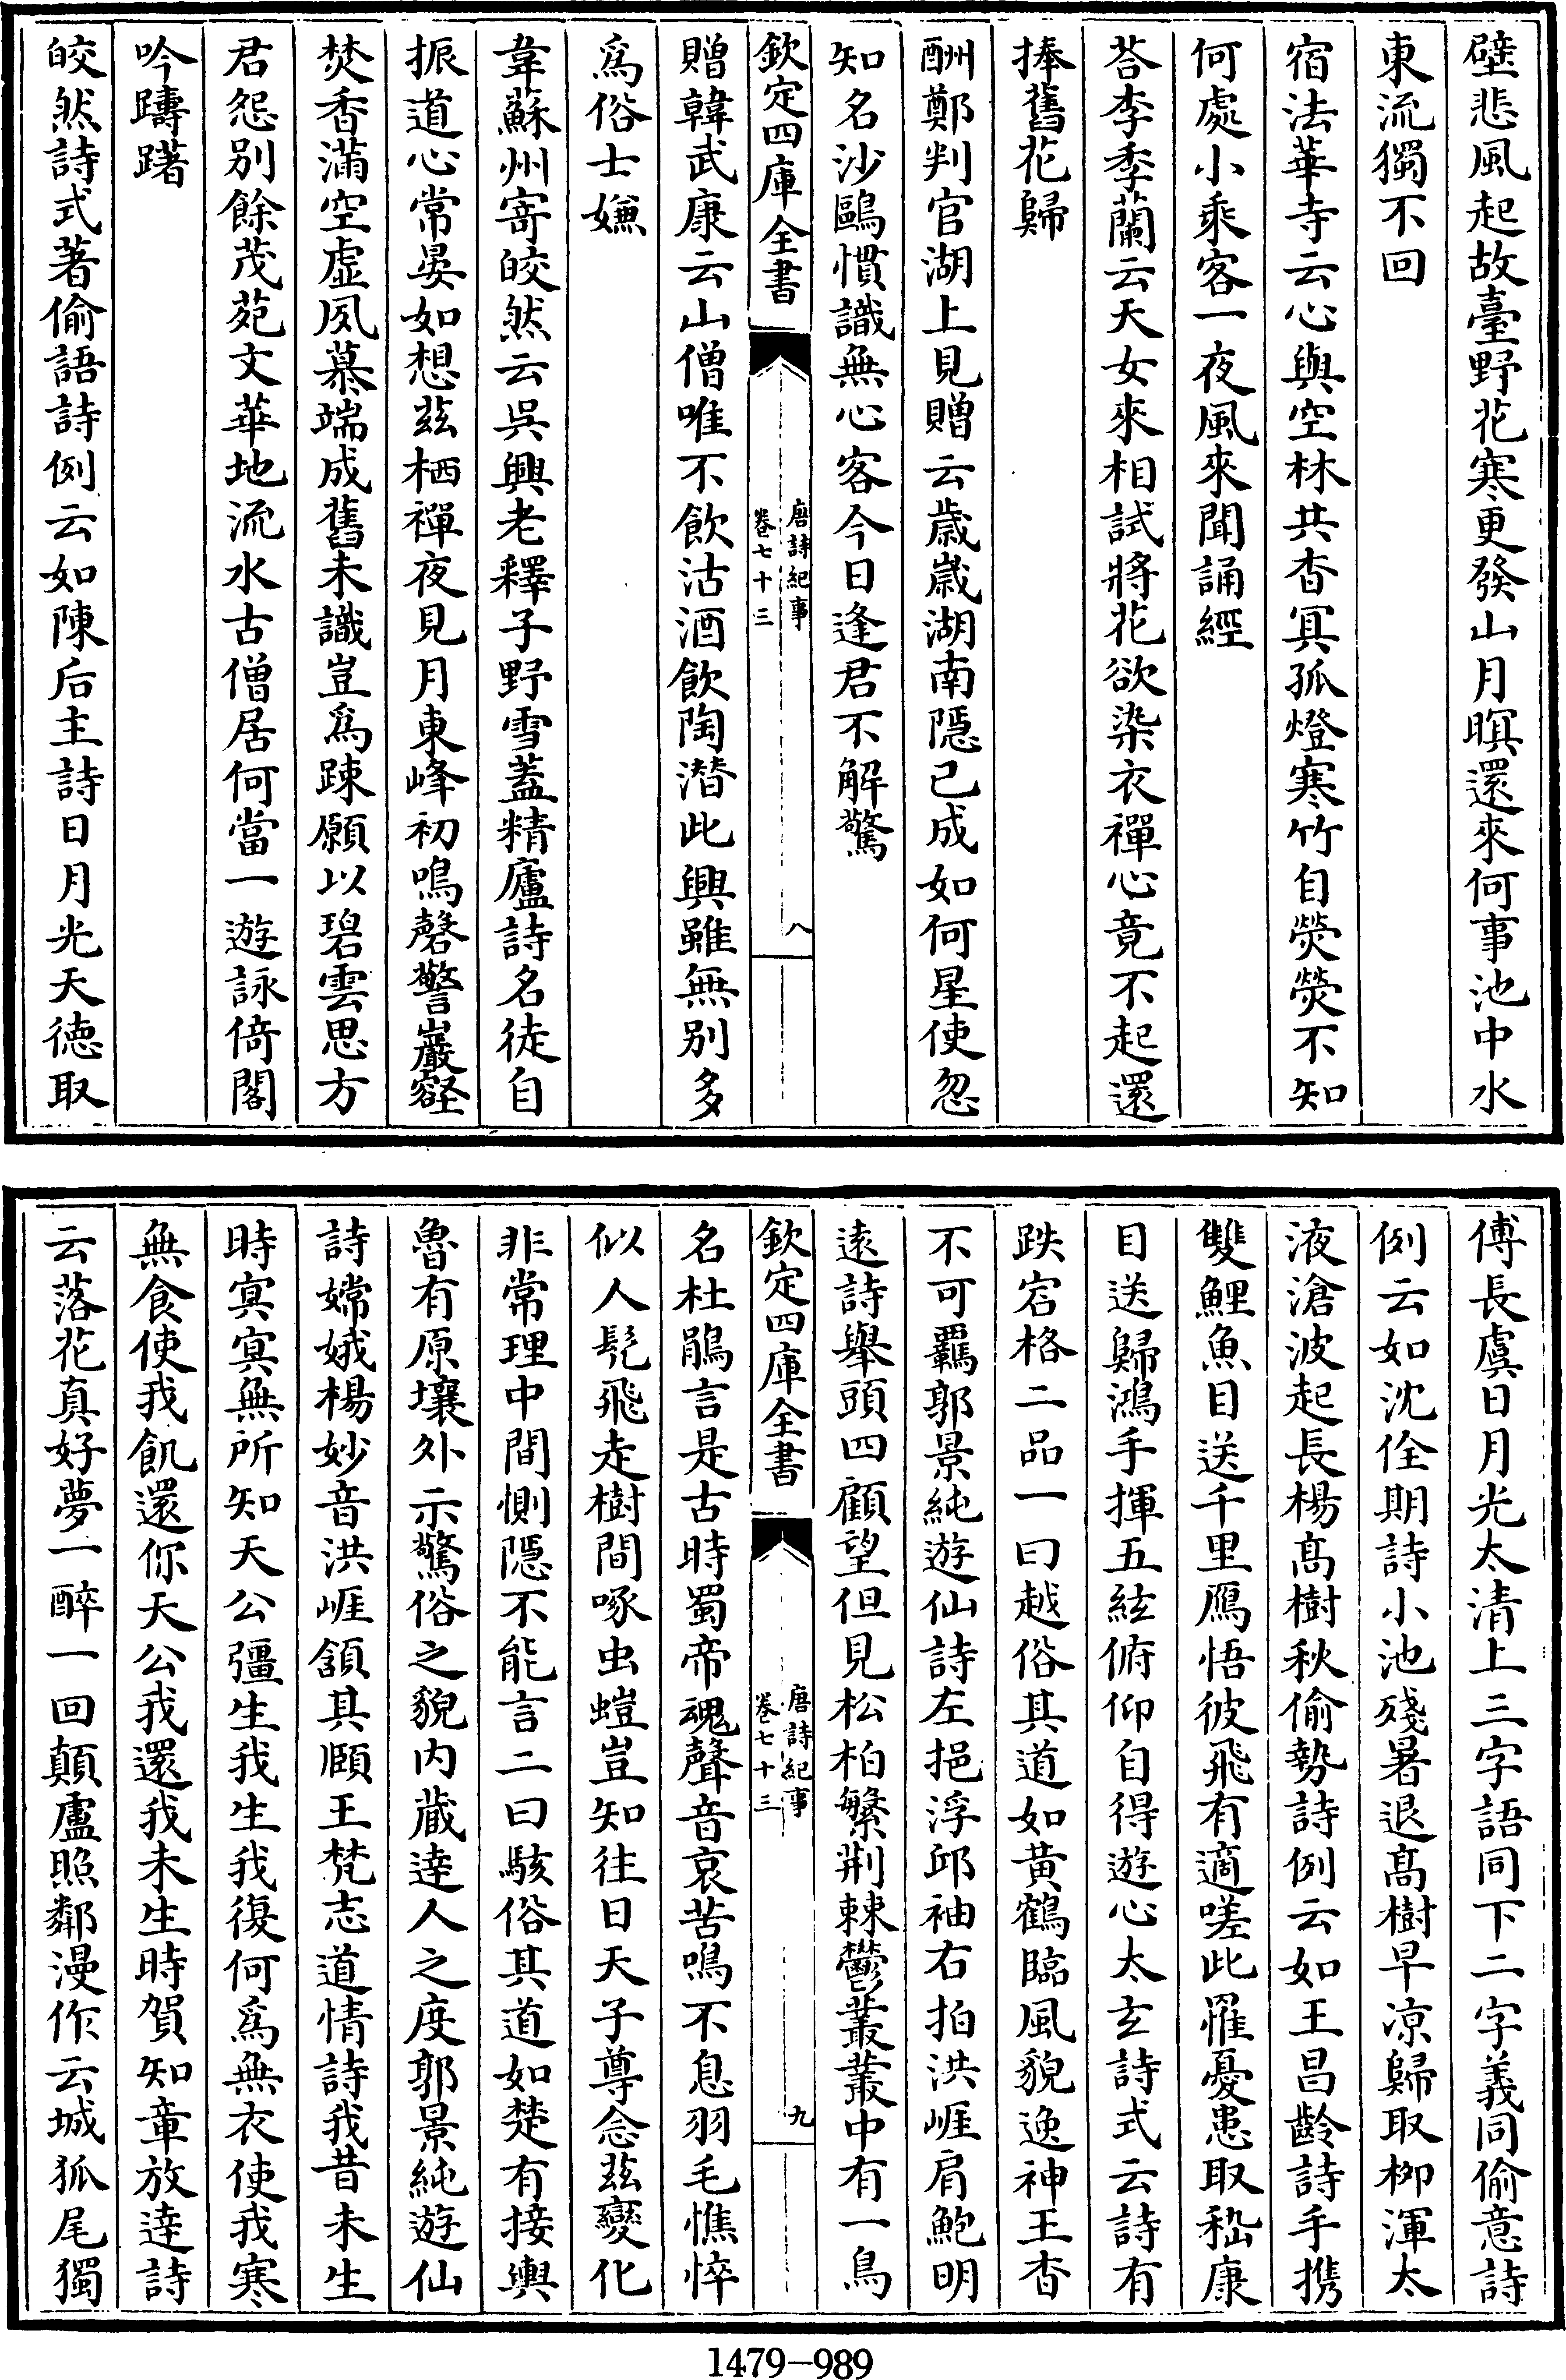 壁悲風起故臺野花寒更發山月暝還來何事池中水
東流獨不回
宿法華寺云心與空林共杳冥孤燈寒竹自熒熒不知
何處小乘客一夜風來聞誦經
荅李季蘭云天女來相試將花欲染衣禪心竟不起還
捧舊花歸
酬鄭判官湖上見贈云歲歲湖南隠已成如何星使忽
知名沙鷗慣識無心客今日逢君不解驚
欽定四庫全書
唐詩紀事
卷七十三
八
贈韓武康云山僧唯不飲沽酒飲陶潛此興雖無别多
爲俗士嫌
韋蘇州寄皎然云吳興老釋子野雪蓋精廬詩名徒自
振道心常晏如想茲栖禪夜見月東峰初鳴磬警巖壑
焚香滿空虛夙慕端成舊未識豈爲踈願以碧雲思方
君怨别餘茂苑文華地流水古僧居何當一遊詠倚閣
吟躊躇
皎然詩式著偷語詩例云如陳后主詩日月光天德取
傅長虞日月光太清上三字語同下二字義同偷意詩
例云如沈佺期詩小池殘暑退髙樹早凉歸取栁渾太
液滄波起長楊髙樹秋偷勢詩例云如王昌齡詩手携
雙鯉魚目送千里鴈悟彼飛有適嗟此罹憂患取嵇康
目送歸鴻手揮五絃俯仰自得遊心太玄詩式云詩有
跌宕格二品一曰越俗其道如黃鶴臨風貌逸神王杳
不可羈郭景純遊仙詩左挹浮邱袖右拍洪崖肩鮑明
遠詩舉頭四顧望但見松柏繁荆棘鬱叢叢中有一鳥
欽定四庫全書
唐詩紀事
卷七十三
九
名杜鵑言是古時蜀帝魂聲音哀苦鳴不息羽毛憔悴
似人髠飛走樹間啄虫螘豈知往日天子尊念茲變化
非常理中間惻隠不能言二曰駭俗其道如楚有接輿
魯有原壤外示驚俗之貌内藏達人之度郭景純遊仙
詩嫦娥楊妙音洪崖頷其頤王梵志道情詩我昔未生
時冥冥無所知天公彊生我生我復何爲無衣使我寒
無食使我飢還你天公我還我未生時賀知章放達詩
云落花真好夢一醉一回顛盧照鄰漫作云城狐尾獨
1479-989